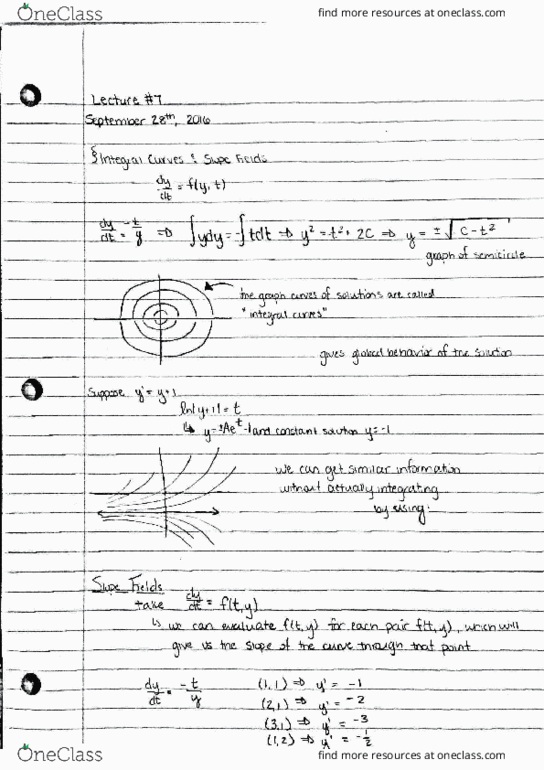 OneClass
find more resources at oneclass.com
Lecture #7
September 28th, 2016
§ Integral Curves & Slope Fields
dy/dt = f(y, t)
dy/dt = -t/y ⇒ ∫ydy = -∫tdt ⇒ y² = -t² + 2C ⇒ y = ±√C - t²
graph of semicircle
the graph curves of solutions are called
"integral curves"
gives global behavior of the solution
Suppose y' = y+1
ln|y+1| = t
↳ y = ±Ae^t - 1 and constant solution y = -1
we can get similar information
without actually integrating
by using:
Slope Fields
take dy/dt = f(t, y)
↳ we can evaluate f(t, y) for each pair f(t, y), which will
give us the slope of the curve through that point
dy/dt = -t/y
(1, 1) ⇒ y' = -1
(2, 1) ⇒ y' = -2
(3, 1) ⇒ y' = -3
(1, 2) ⇒ y' = -1/2
OneClass
find more resources at oneclass.com